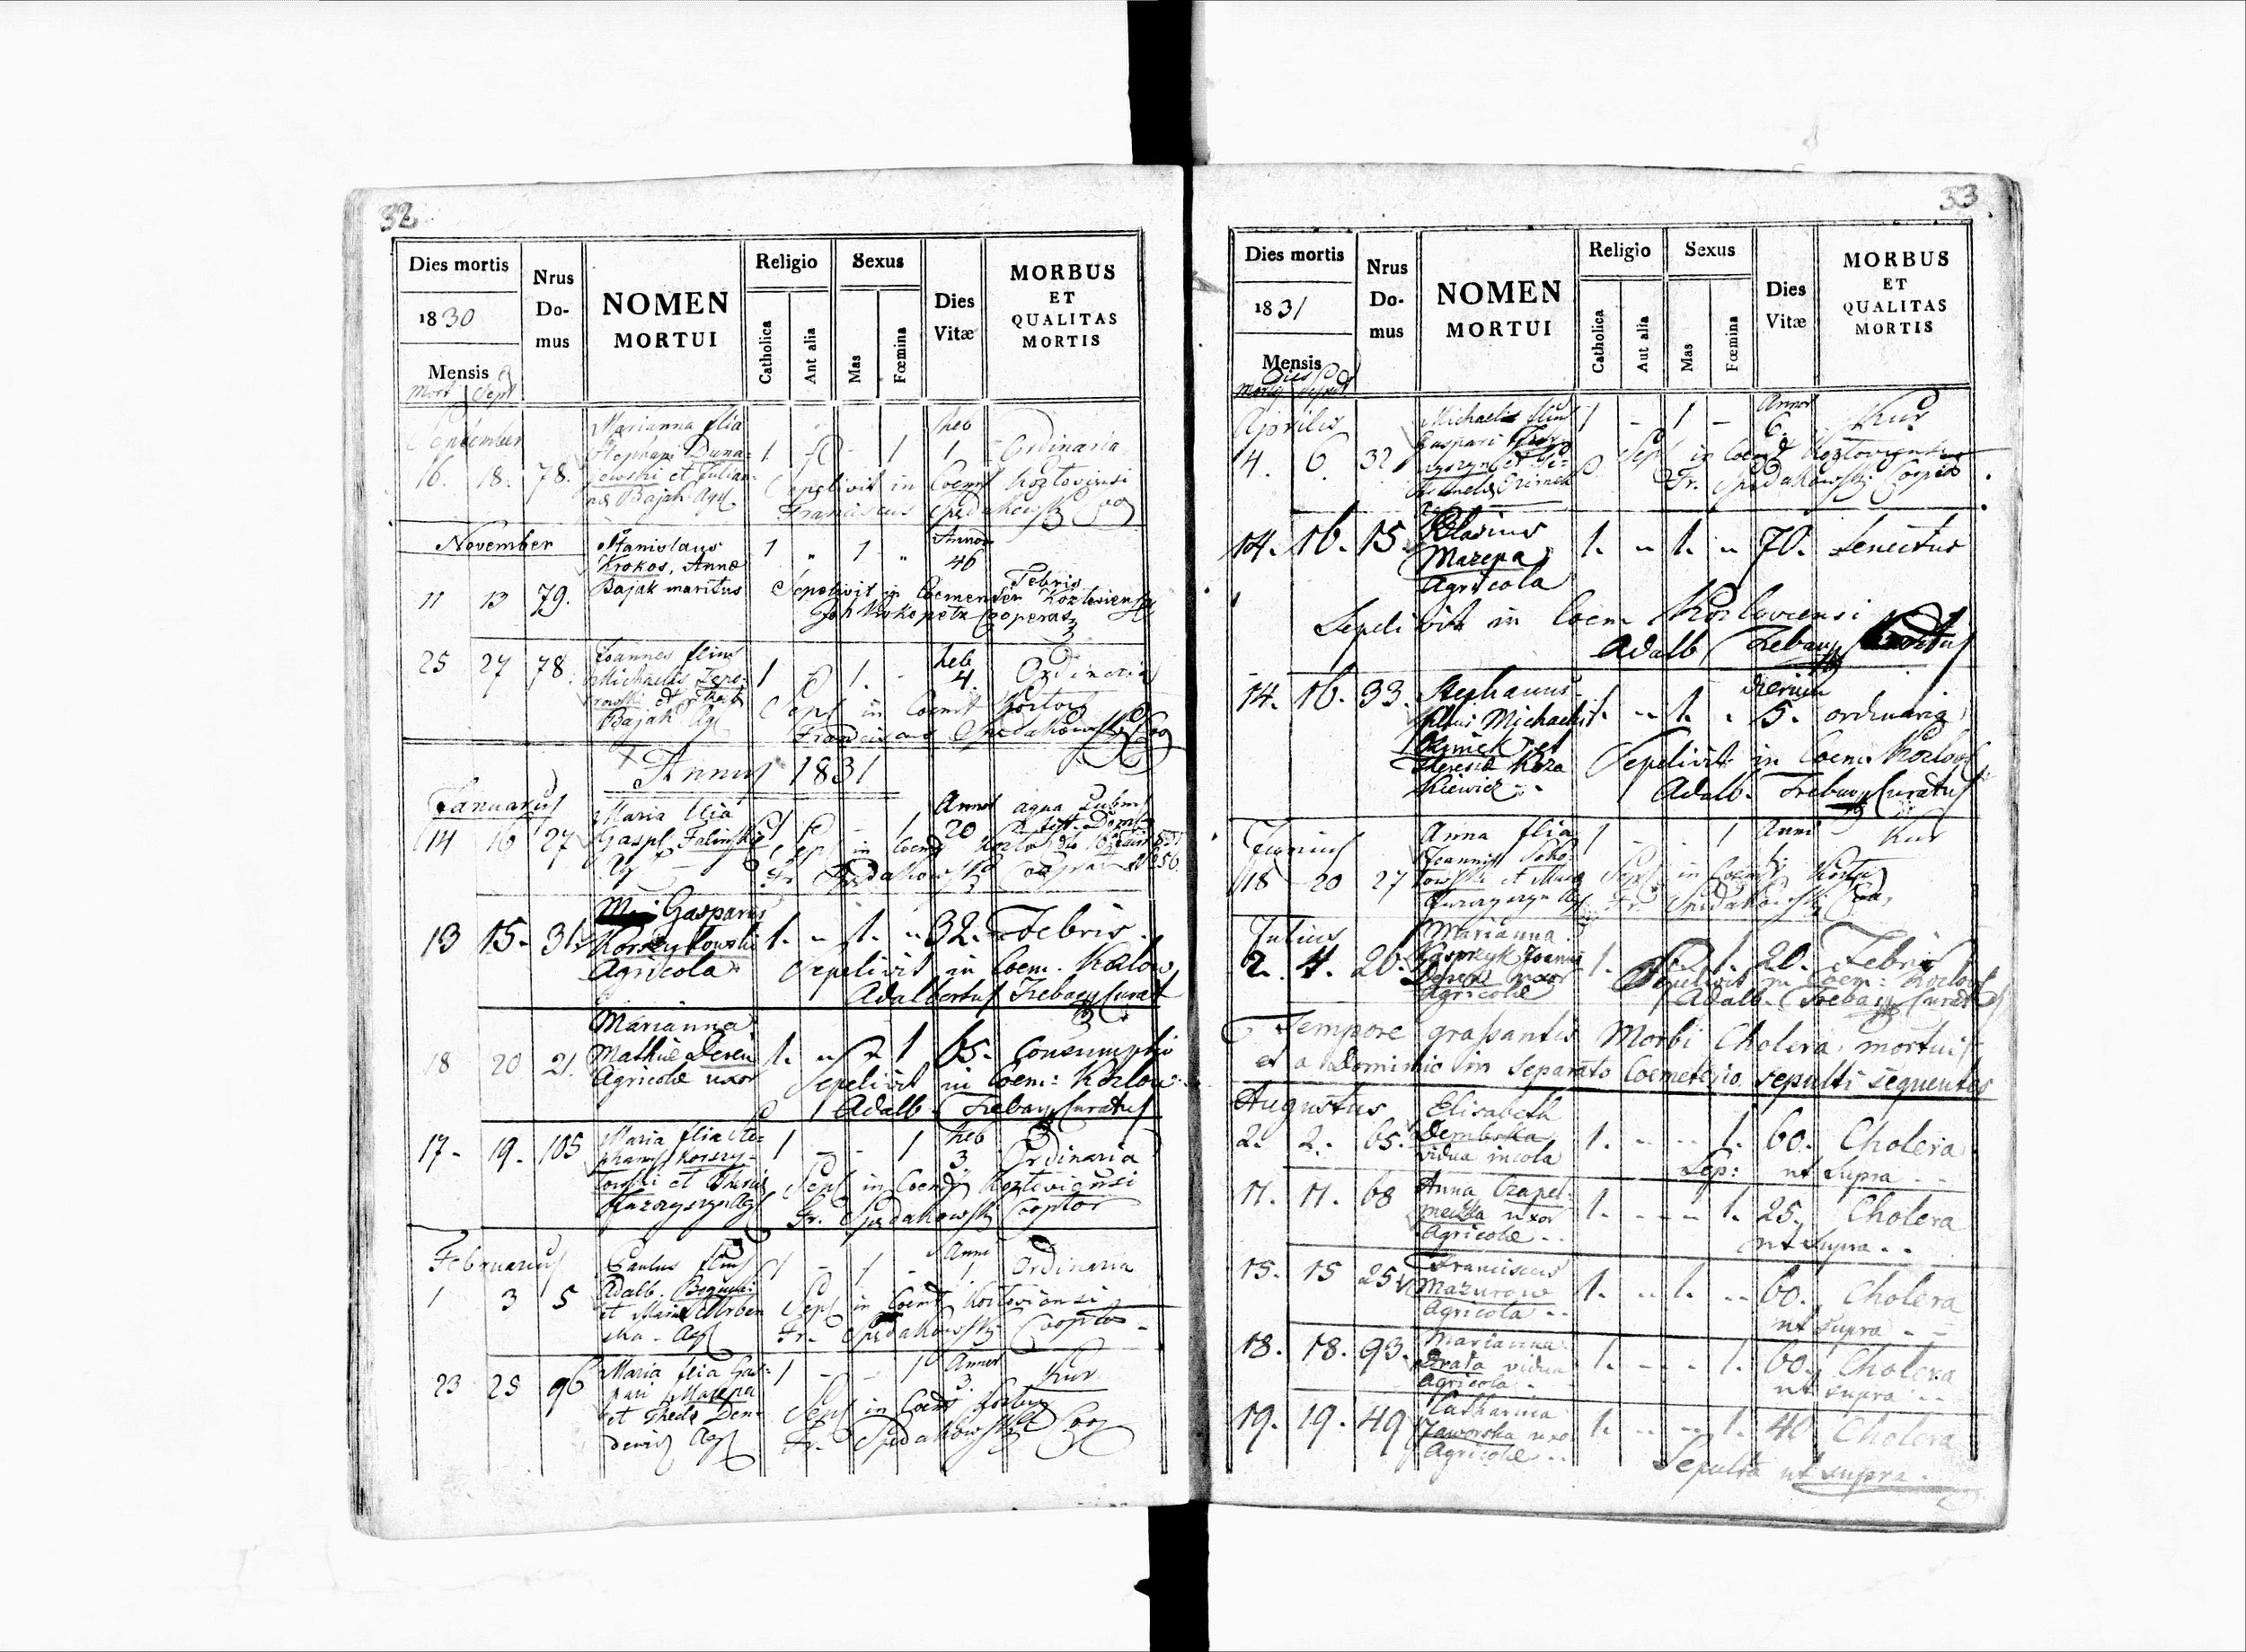 32
Dies mortis
1830
Mensis
Mort Sept
Nrus
Do-
mus
NOMEN
MORTUI
Religio
Catholica
Aut alia
Sexus
Mas
Fœmina
Dies
Vitæ
MORBUS
ET
QUALITAS
MORTIS
September
16. 18. 78.
Marianna filia
Stephani Duna-
jewski et Julian-
næ Bajak Agr
1 1
heb
1
Ordinaria
Sepelivit in Coemet Kozloviensi
Franciscus Spedakowski Coo
November
11 13 79.
Stanislaus
Krokos, Annæ
Bajak maritus
1 " 1 "
Annor
46
Febris
Sepelivit in Coemeterio Kozloviensi
Cooperator
25 27 78.
Joannes filius
Michaelis
Bajak Agr
1 1. -
heb
4.
Ordinaria
Sepel in Coemet Kozlov
Franciscus Spedakowski Coo
Annus 1831
Januarius
14 16 27
Maria filia
Gasp Falinski
Agr
1 - 1
Annor
20
aqua
Sep in Coem Kozlov
Fr Spedakowski Cooprator
13 15. 31.
Gasparus
Korszylowski
Agricola
1. " 1. " 32. Febris.
Sepelivit in Coem. Kozlow
Adalbertus Trebacz Curat
18 20 21.
Marianna
Mathiæ Deren
Agricolæ uxor
1. " " 1 65. Consumptio
Sepelivit in Coem: Kozlow:
Adalb. Trebacz Curatus
17- 19. 105
Maria filia Ste-
phani Korszy-
lowski et
Agr
1 - - 1
heb
3
Ordinaria
Sepel in Coem Kozloviensi
Fr. Spedakowski Cooptor
Februarius
1 3 5
Paulus filius
Adalb.
et Maria Urban
ska - Agr
1 - 1 -
Anni
1
Ordinaria
Sepel in Coemet Kozloviensi
Fr. Spedakowski Cooptor
23 25 96
Maria filia Gas-
pari Mazepa
et Theclæ Den-
dewicz Agr
1 - - 1
Annor
3.
Kur
Sepel in Coem Kozlov
Fr. Spedakowski Coo
33
Dies mortis
1831
Mensis
Dies
Mortis Sepult
Nrus
Do-
mus
NOMEN
MORTUI
Religio
Catholica
Aut alia
Sexus
Mas
Fœmina
Dies
Vitæ
MORBUS
ET
QUALITAS
MORTIS
Aprilis
4. 6 32
Michael filius
Gaspari
1 - 1 -
Annor
6.
Kur
Sepel in Coemet Kozloviensi
Fr. Spedakowski Cooptor
14. 16. 15.
Blasius
Mazepa
Agricola
1. " 1. " 70. Senectus
Sepelivit in Coem Kozloviensi
Adalb Trebacz Curatus
14. 16. 33.
Stephanus
filius Michaelis
Klimek et
Theresiæ Koza
kiewicz
1. " 1. "
dierum
5. ordinaria
Sepelivit in Coem. Kozlov
Adalb. Trebacz Curatus
Junius
18 20 27
Anna filia
Joannis Soko-
lowski et
1 - - 1
Anni
1.
Kur
Sepel in Coemet Kozlov
Fr. Spedakowski Coo
Julius
2. 4. 20.
Marianna
Kasprzyk Joannis
Deren uxor
Agricolæ
1. 1. 20. Febris
Sepelivit in Coem: Kozlov
Adalb. Trebacz Curat
Tempore grassantis Morbi Cholera mortui
et a Dominio in separato Coemeterio sepulti sequentes
Augustus
2. 2. 65.
Elisabeth
Dembska
vidua incola
1. " " 1. 60. Cholera.
Sep: ut supra
11. 11. 68
Anna Czapel-
meiska uxor
Agricolæ
1. " " 1. 25. Cholera
ut supra
15. 15 25
Franciscus
Mazurow
Agricola
1. " 1. " 60. Cholera
ut supra
18. 18. 93.
Marianna
Brata vidua
Agricola
1. " " 1. 60. Cholera
ut supra
19. 19. 49
Catharina
Jaworska uxor
Agricolæ
1. " " 1. 40 Cholera
Sepulta ut supra.